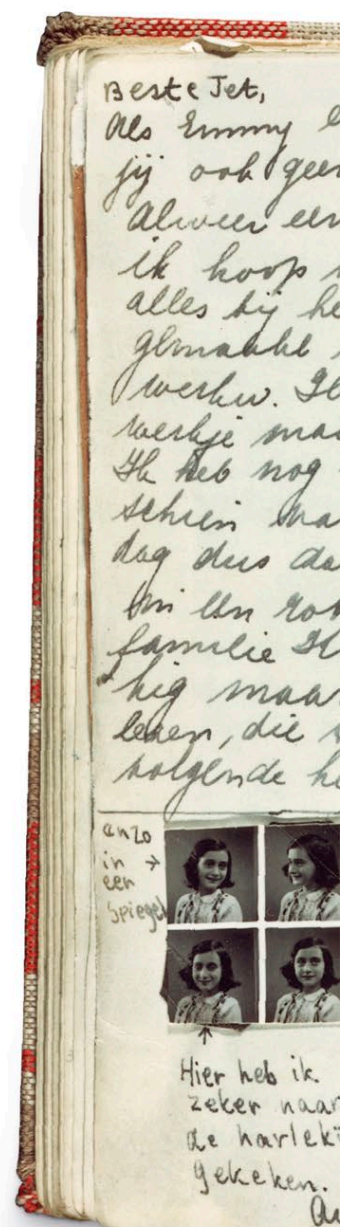 Beste Jet,
Als Emmy e
jij ook geen
alweer een
ik hoop
alles bij he
gemaakt
werken. Ik
werkje maa
Ik heb nog
schien
dag dus da
in een ro
familie
hig maar
lezen, die
volgende he
enzo
in →
een
Spiegel
↑
Hier heb ik
zeker naar
de harleki
gekeken.